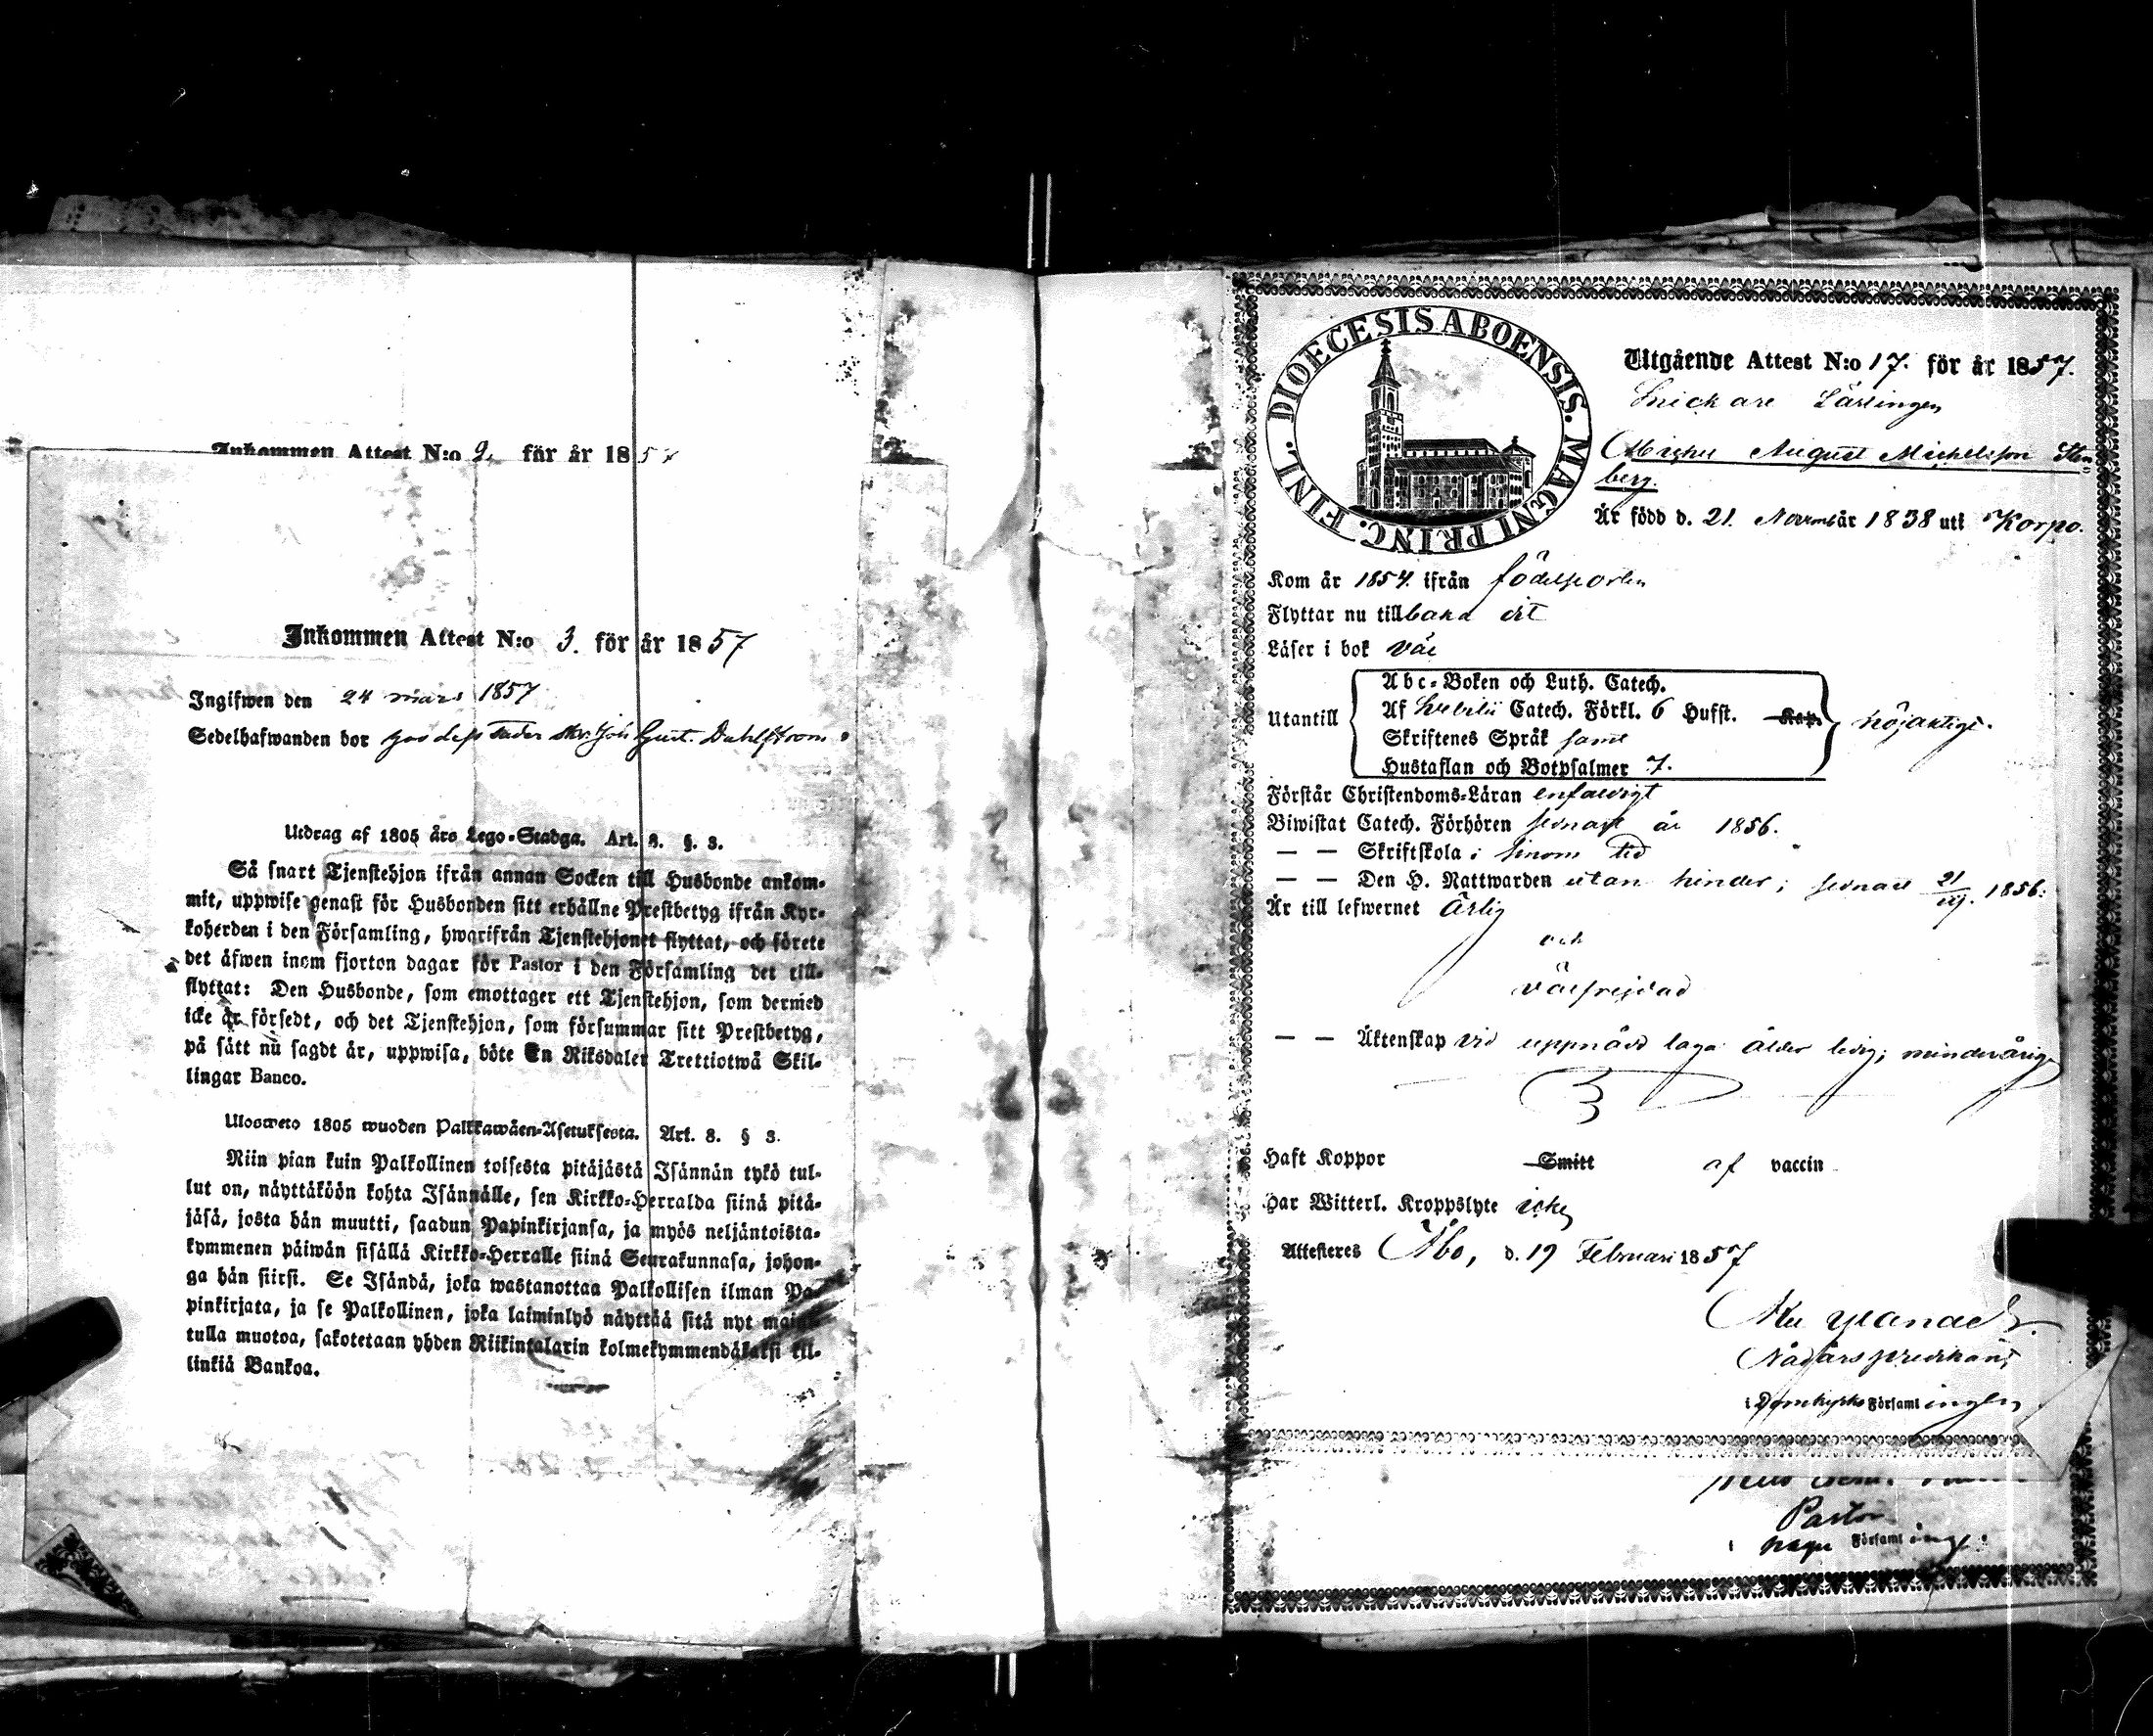 Inkommen Attest N:o 2. för år 1857
Inkommen Attest N:o 3. för år 1857
Ingifwen den 24 mars 1857
Sedelhafwanden bor hos dess Fader Gust. Dahlström
Utdrag af 1805 års Lego-Stadga. Art. 8. §. 3.
Så snart Tjenstehjon ifrån annan Socken till Husbonde ankom-
mit, uppwise genast för Husbonden sitt erhållne Prestbetyg ifrån Kyr-
koherden i den Församling, hwarifrån Tjenstehjonet flyttat, och förete
det äfwen inom fjorton dagar för Pastor i den Församling det till-
flyttat: Den Husbonde, som emottager ett Tjenstehjon, som dermed
icke är försedt, och det Tjenstehjon, som försummar sitt Prestbetyg,
på sätt nu sagdt är, uppwisa, böte En Riksdaler Trettiotwå Skil-
lingar Banco.
Ulosweto 1805 wuoden Palkkawäen-Asetuksesta. Art. 8. § 3.
Niin pian kuin Palkollinen toisesta pitäjästä Isännän tykö tul-
lut on, näyttäköön kohta Isännälle, sen Kirkko-Herralda siinä pitä-
jäsä, josta hän muutti, saadun Papinkirjansa, ja myös neljäntoista-
kymmenen päiwän sisällä Kirkko-Herralle siinä Seurakunnasa, johon-
ga hän siirsi. Se Isändä, joka wastanottaa Palkollisen ilman Pa-
pinkirjata, ja se Palkollinen, joka laiminlyö näyttää sitä nyt
tulla muotoa, sakotetaan yhden Riikintalarin kolmekymmendäkaksi kil-
linkiä Bankoa.
FINL. DIOECESIS ABOENSIS. MAGNI PRINC.
Utgående Attest N:o 17. för år 1857.
Snickare Lärlingen
Michel August Michelsson Sten
berg.
Är född d. 21 Novemb år 1838 uti Korpo.
Kom år 1854 ifrån födelseorten
Flyttar nu tillbaka dit
Läser i bok väl
Utantill
Abc-Boken och Luth. Catech.
Af Svebelii Catech. Förkl. 6 Hufst. Kap.
Skriftenes Språk samt
Hustaflan och Botpsalmer 7.
nöjaktigt.
Förstår Christendoms-Läran enfaldigt
Biwistat Catech. Förhören sednast år 1856.
— — Skriftskola i sinom tid
— — Den H. Nattwarden utan hinder; sednast 21/ 1856.
Är till lefwernet ärlig
och
välfrejdad
— — Äktenskap vid uppnådd laga ålder ledig; minderårig
Haft Koppor Smitt af vaccin
Har Witterl. Kroppslyte icke
Attesteres Åbo, d. 19 Februari 1857
Nådårspredikant
i Domkyrko Församlingen
Pastor
i Församling